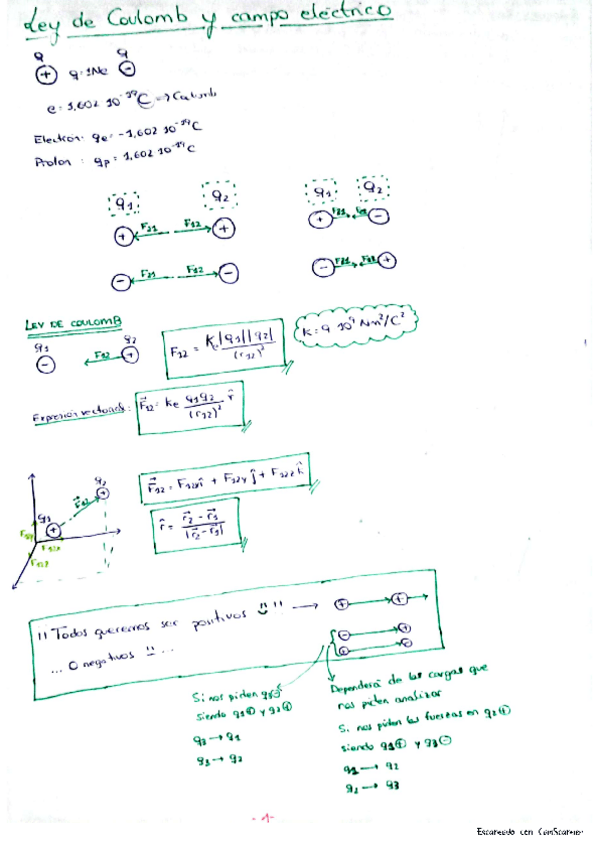 Ley de Coulomb y campo eléctrico
q q
+ q=±Ne -
e=1,602 10⁻¹⁹C => Coulomb
Electrón: qe= -1,602 10⁻¹⁹C
Protón : qp= 1,602 10⁻¹⁹C
q1 q2 q1 q2
+ F21 F12 + + F21 F12 -
- F21 F12 - - F21 F12 +
LEY DE COULOMB
q1 q2
- F12 + F12 = K|q1||q2| / (r12)² K=9 10⁹ Nm²/C²
Expresión vectorial: F⃗12= Ke q1q2 / (r12)² r̂
F⃗12= F12x î + F12y ĵ + F12z k̂
r̂ = r⃗2 - r⃗1 / |r⃗2 - r⃗1|
q1 F⃗12 q2
"Todos queremos ser positivos" → + → +
... O negativos ...
Si nos piden q3
siendo q1⊕ y q2⊕
q3 → q1
q3 → q2
Dependerá de las cargas que
nos piten analizar
Si nos piden las fuerzas en q2⊕
siendo q1⊕ y q3⊖
q1 → q2
q2 → q3
-1-
Escaneado con CamScanner